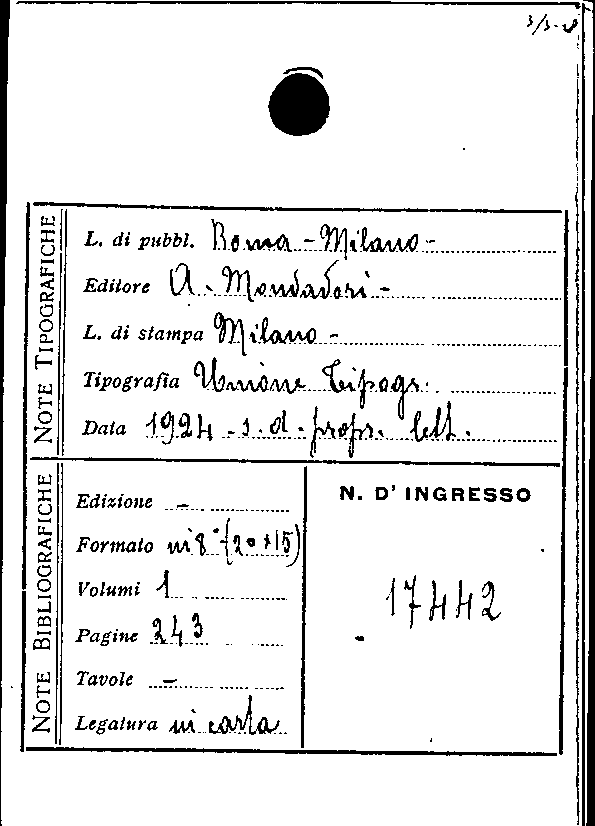 3/3-28
NOTE TIPOGRAFICHE
L. di pubbl. Roma - Milano -
Editore A. Mondadori -
L. di stampa Milano -
Tipografia Unione Tipogr.
Data 1924 - s. d. - propr. lett.
NOTE BIBLIOGRAFICHE
Edizione -
Formato in 8° (20×15)
Volumi 1
Pagine 243
Tavole -
Legatura in carta
N. D' INGRESSO
17442